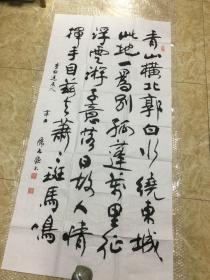 青山横北郭白水繞東城
此地一為別孤蓬萬里征
浮雲游子意落日故人情
揮手自茲去蕭々斑馬鳴
李白送友人